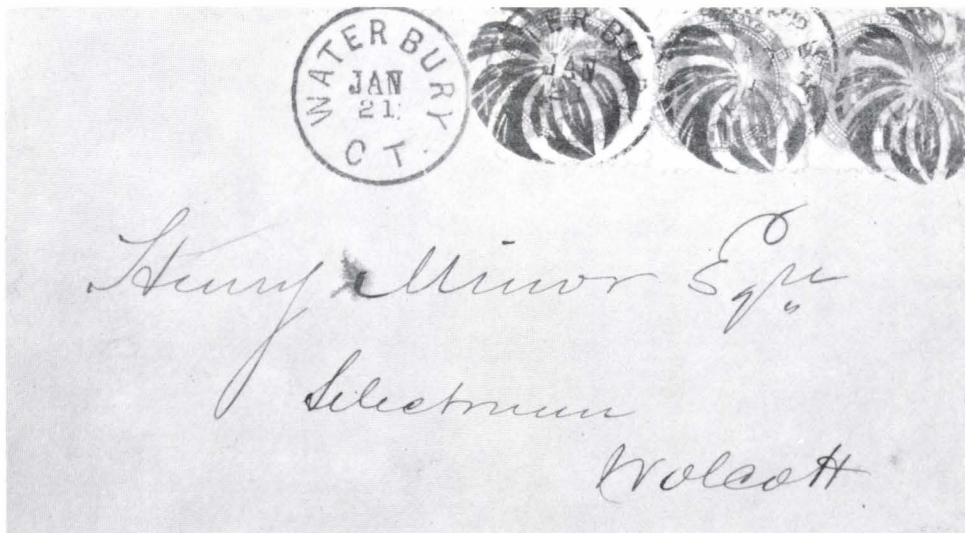 WATERBURY
JAN
21
CT.
TERBU
JAN
Henry Minor Esqr
Selectman
Wolcott